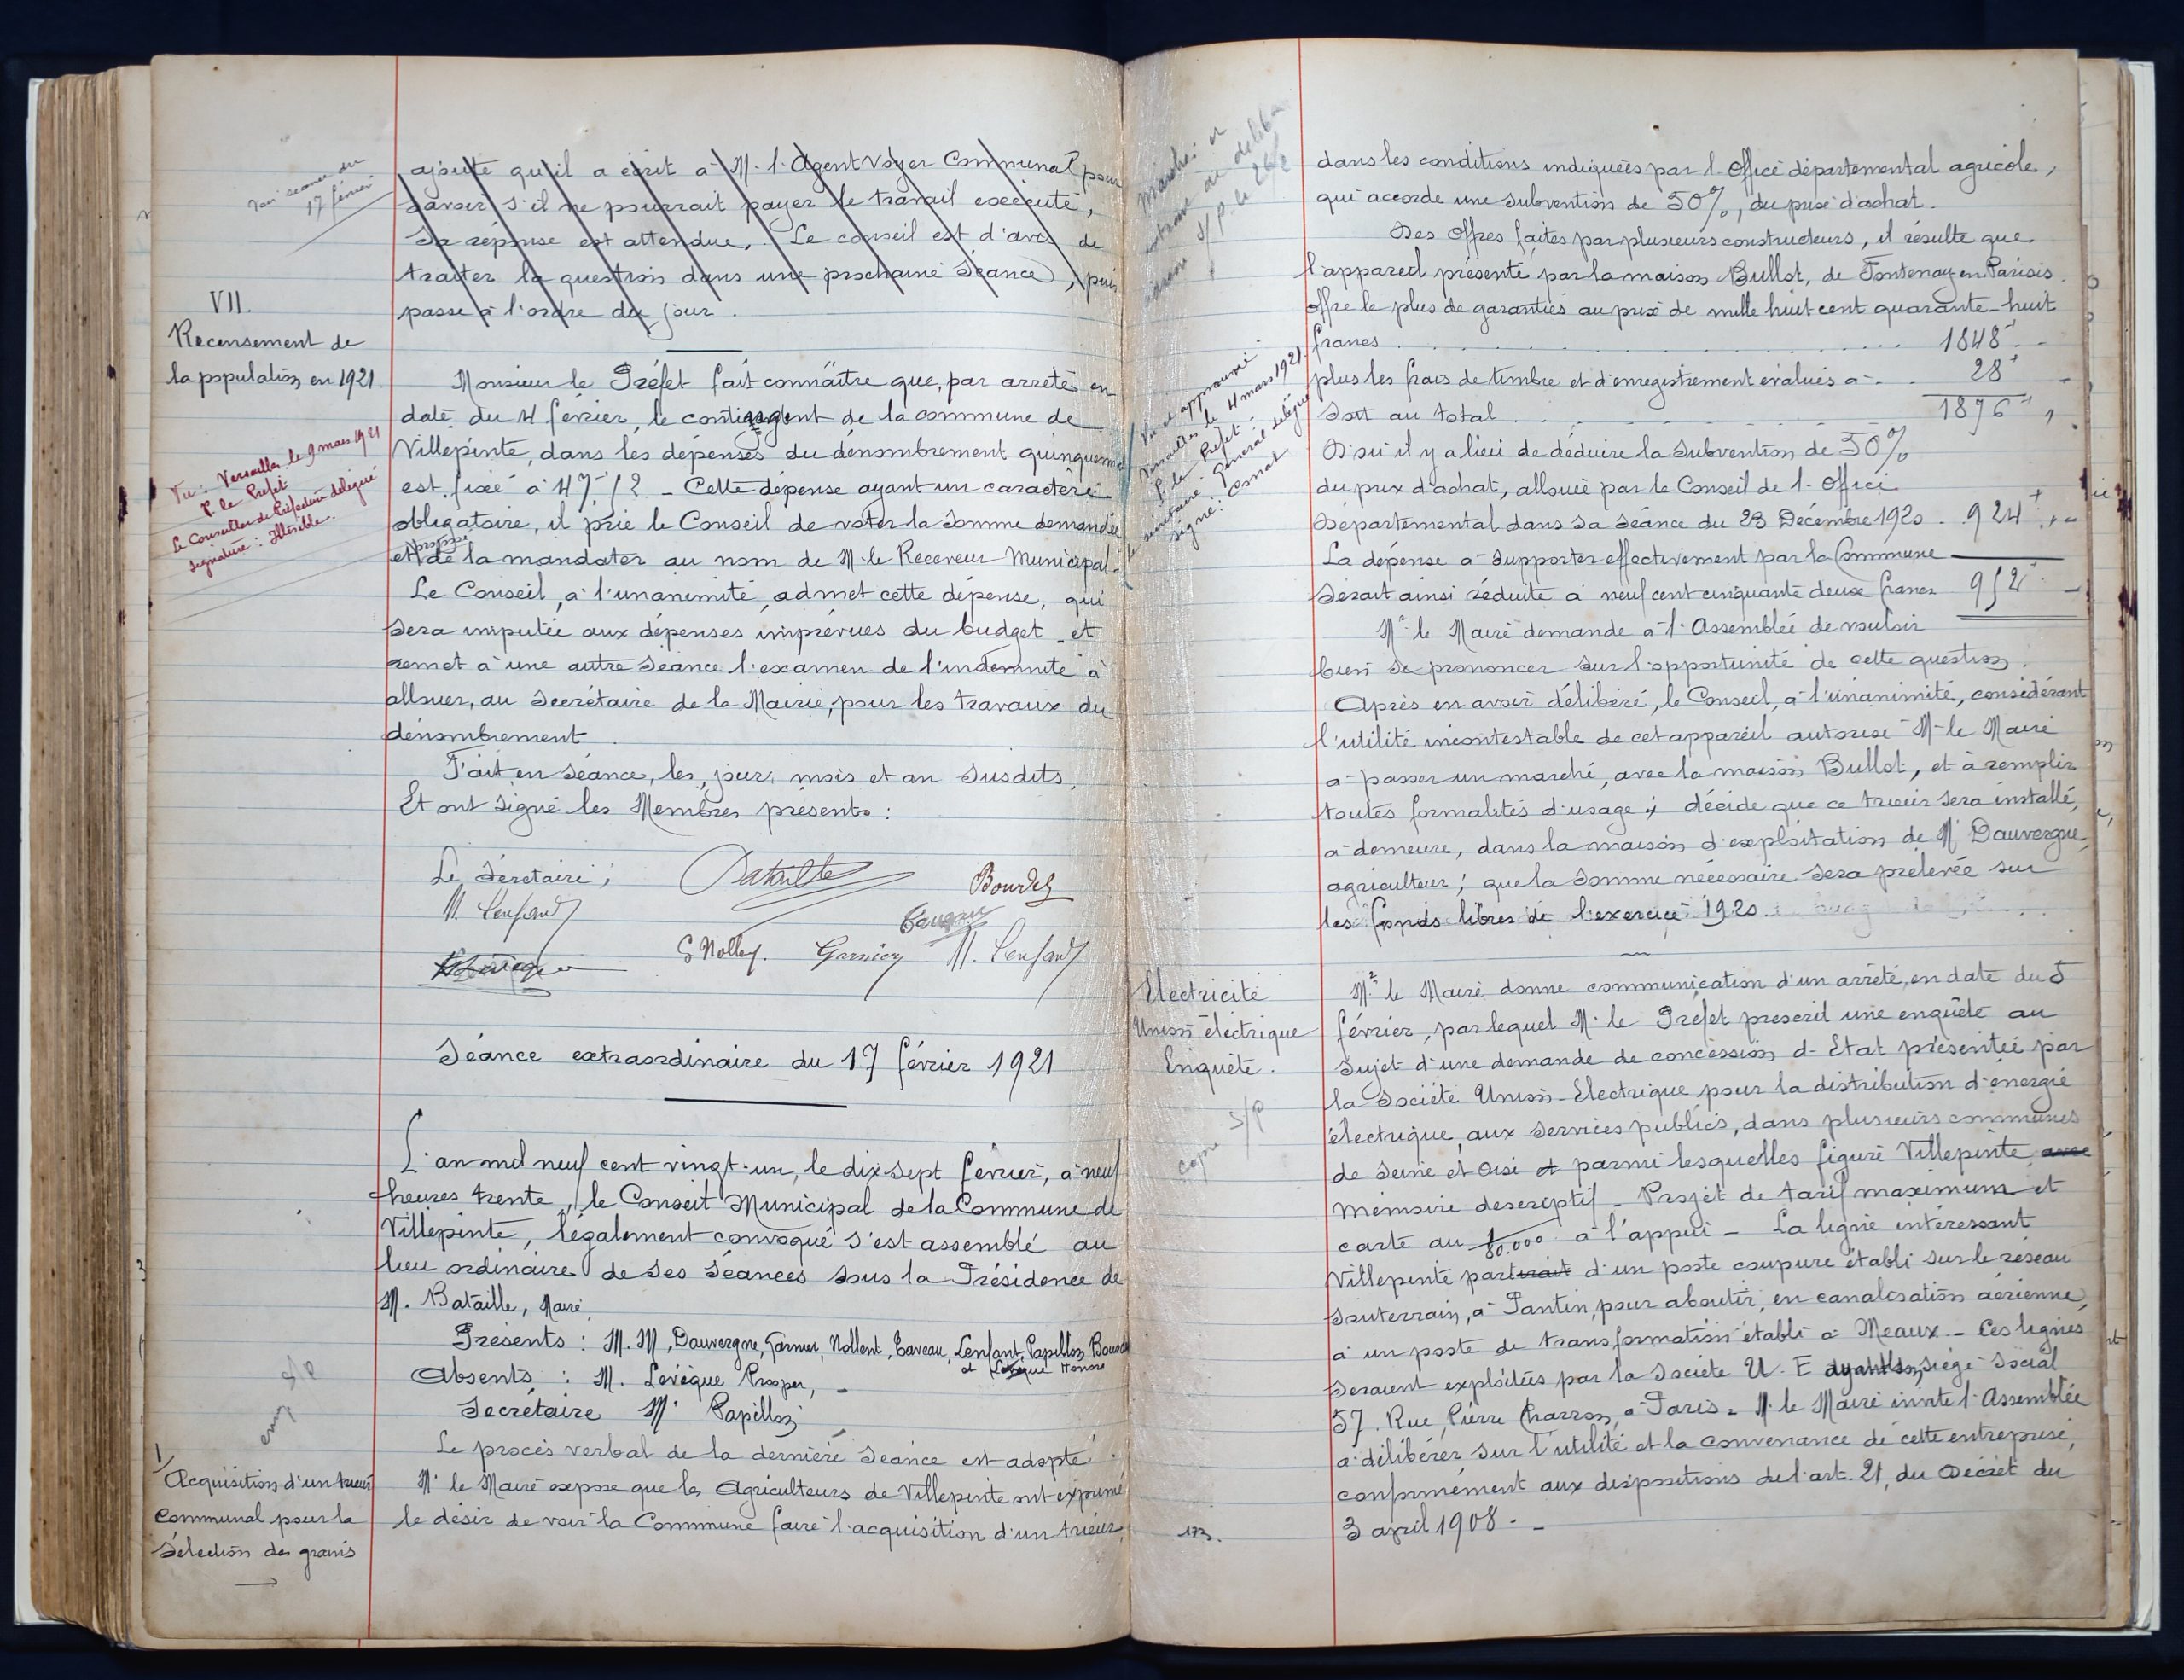 Voir séance du
17 février
ajoute qu'il a écrit à M. l'Agent Voyer Communal pour
savoir s'il ne pourrait payer le travail exécuté,
Sa réponse est attendue. Le conseil est d'avis de
traiter la question dans une prochaine Séance, puis
passe à l'ordre du jour.
VII.
Recensement de
la population en 1921.
Monsieur le Préfet fait connaître que, par arrêté en
date du 4 février, le contingent de la commune de
Villepinte, dans les dépenses du dénombrement quinquennal
est fixé à 47f,12 - Cette dépense ayant un caractère
obligatoire, il prie le Conseil de voter la somme demandée
et de la mandater au nom de M. le Receveur Municipal.
Vu : Versailles le 9 mars 1921
P. le Préfet
Le Conseiller de Préfecture délégué
signature : Illisible.
Le Conseil, à l'unanimité, admet cette dépense, qui
sera imputée aux dépenses imprévues du budget et
remet à une autre Séance l'examen de l'indemnité à
allouer, au Secrétaire de la Mairie, pour les travaux du
dénombrement.
Fait en Séance, les, jour, mois et an susdits,
Et ont signé les Membres présents :
Le Sécretaire ;
Bataille
Bourdel
M. Lenfant
Caveau
G Nollent
Garnier
M. Lenfant
Séance extraordinaire du 17 février 1921
L'an mil neuf cent vingt-un, le dix sept février, à neuf
heures trente, le Conseil Municipal de la Commune de
Villepinte, légalement convoqué s'est assemblé au
lieu ordinaire de ses Séances sous la Présidence de
M. Bataille, Maire
Présents : M.M, Dauvergne, Garnier, Nollent, Caveau, Lenfant, Papillon,
et Levêque Honoré
Absents : M. Levêque Prosper, -
Secrétaire M. Papillon
Le procès verbal de la dernière Séance est adopté.
1/
Acquisition d'un trieur
communal pour la
Sélection des grains
M. le Maire expose que les Agriculteurs de Villepinte ont exprimé
le désir de voir la Commune faire l'acquisition d'un trieur,
dans les conditions indiquées par l'Office départemental agricole,
qui accorde une subvention de 50%, du prix d'achat.
Des Offres faites par plusieurs constructeurs, il résulte que
l'appareil présenté par la maison Bullot, de Fontenay en Parisis.
offre le plus de garanties au prix de mille huit cent quarante-huit
francs 1848f
plus les frais de timbre et d'enregistrement évalués à 28f
soit au total 1876f
Vu et approuvé
Versailles le 4 mars 1921
P. le Préfet
Le Secrétaire Général délégué
signé :
D'où il y a lieu de déduire la subvention de 50%
du prix d'achat, allouée par le Conseil de l'Office
Départemental dans sa séance du 23 Décembre 1920. 924f
La dépense à supporter effectivement par la Commune
serait ainsi réduite à neuf cent cinquante deux francs 952f
Mr le Maire demande à l'Assemblée de vouloir
bien se prononcer sur l'opportunité de cette question.
Après en avoir délibéré, le Conseil, à l'unanimité, considérant
l'utilité incontestable de cet appareil autorise M. le Maire
à passer un marché, avec la maison Bullot, et à remplir
toutes formalités d'usage ; décide que ce trieur sera installé,
à demeure, dans la maison d'exploitation de M. Dauvergne,
agriculteur ; que la somme nécessaire sera prélevée sur
les fonds libres de l'exercice 1920
Electricité
Union électrique
Enquête.
copie S/P
Mr le Maire donne communication d'un arrêté, en date du 5
février, par lequel M. le Préfet prescrit une enquête au
sujet d'une demande de concession d'Etat présentée par
la Société Union-Electrique pour la distribution d'énergie
électrique, aux services publics, dans plusieurs communes
de Seine et Oise et parmi lesquelles figure Villepinte avec
Mémoire descriptif - Projet de tarif maximum et
carte au 1/80.000 à l'appui - La ligne intéressant
Villepinte partirait d'un poste coupure établi sur le réseau
souterrain, à Pantin, pour aboutir, en canalisation aérienne,
à un poste de transformation établi à Meaux - Ces lignes
seraient exploitées par la Société U. E ayant son siège Social
57. Rue Pierre Charron, à Paris - M. le Maire invite l'Assemblée
à délibérer sur l'utilité et la convenance de cette entreprise,
conformément aux dispositions de l'art. 21, du Décret du
3 april 1908. -
173.